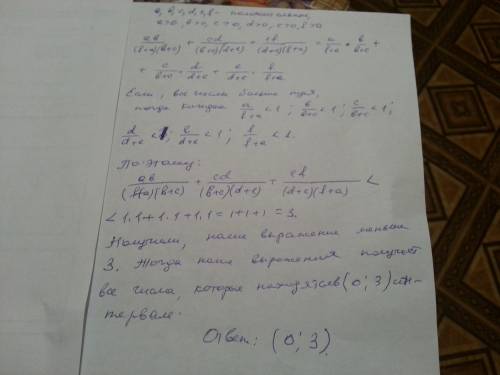 a, b, c, d, e, f – положительные,
a>0, b>0, c>0, d>0, e>0, f>0
ab/((f+a)(b+c)) + cd/((b+c)(d+e)) + ef/((d+e)(f+a)) = a/(f+a) · b/(b+c) +
+ c/(b+c) · d/(d+e) + e/(d+e) · f/(f+a)
Если, все числа больше нуля,
тогда каждая a/(f+a) < 1 ; b/(b+c) < 1 ; c/(b+c) < 1 ;
d/(d+e) < 1 ; e/(d+e) < 1 ; f/(f+a) < 1.
Поэтому:
ab/((f+a)(b+c)) + cd/((b+c)(d+e)) + ef/((d+e)(f+a)) <
< 1·1 + 1·1 + 1·1 = 1+1+1 = 3.
Получили, наше выражение меньше
3. Тогда наше выражения получит
все числа, которые находятся в (0; 3) ин-
тервале.
Ответ: (0; 3).